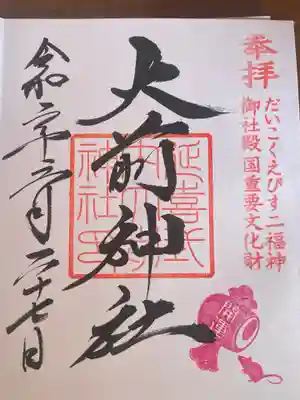 奉拝
だいこくえびす二福神
御社殿国重要文化財
大前神社
延喜式
神社
開運
令和
月二十七日